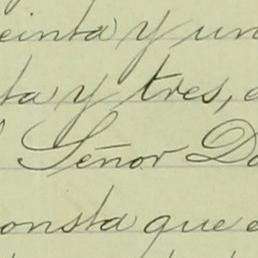 einta y un
ta y tres, e
Señor Do
onsta que e